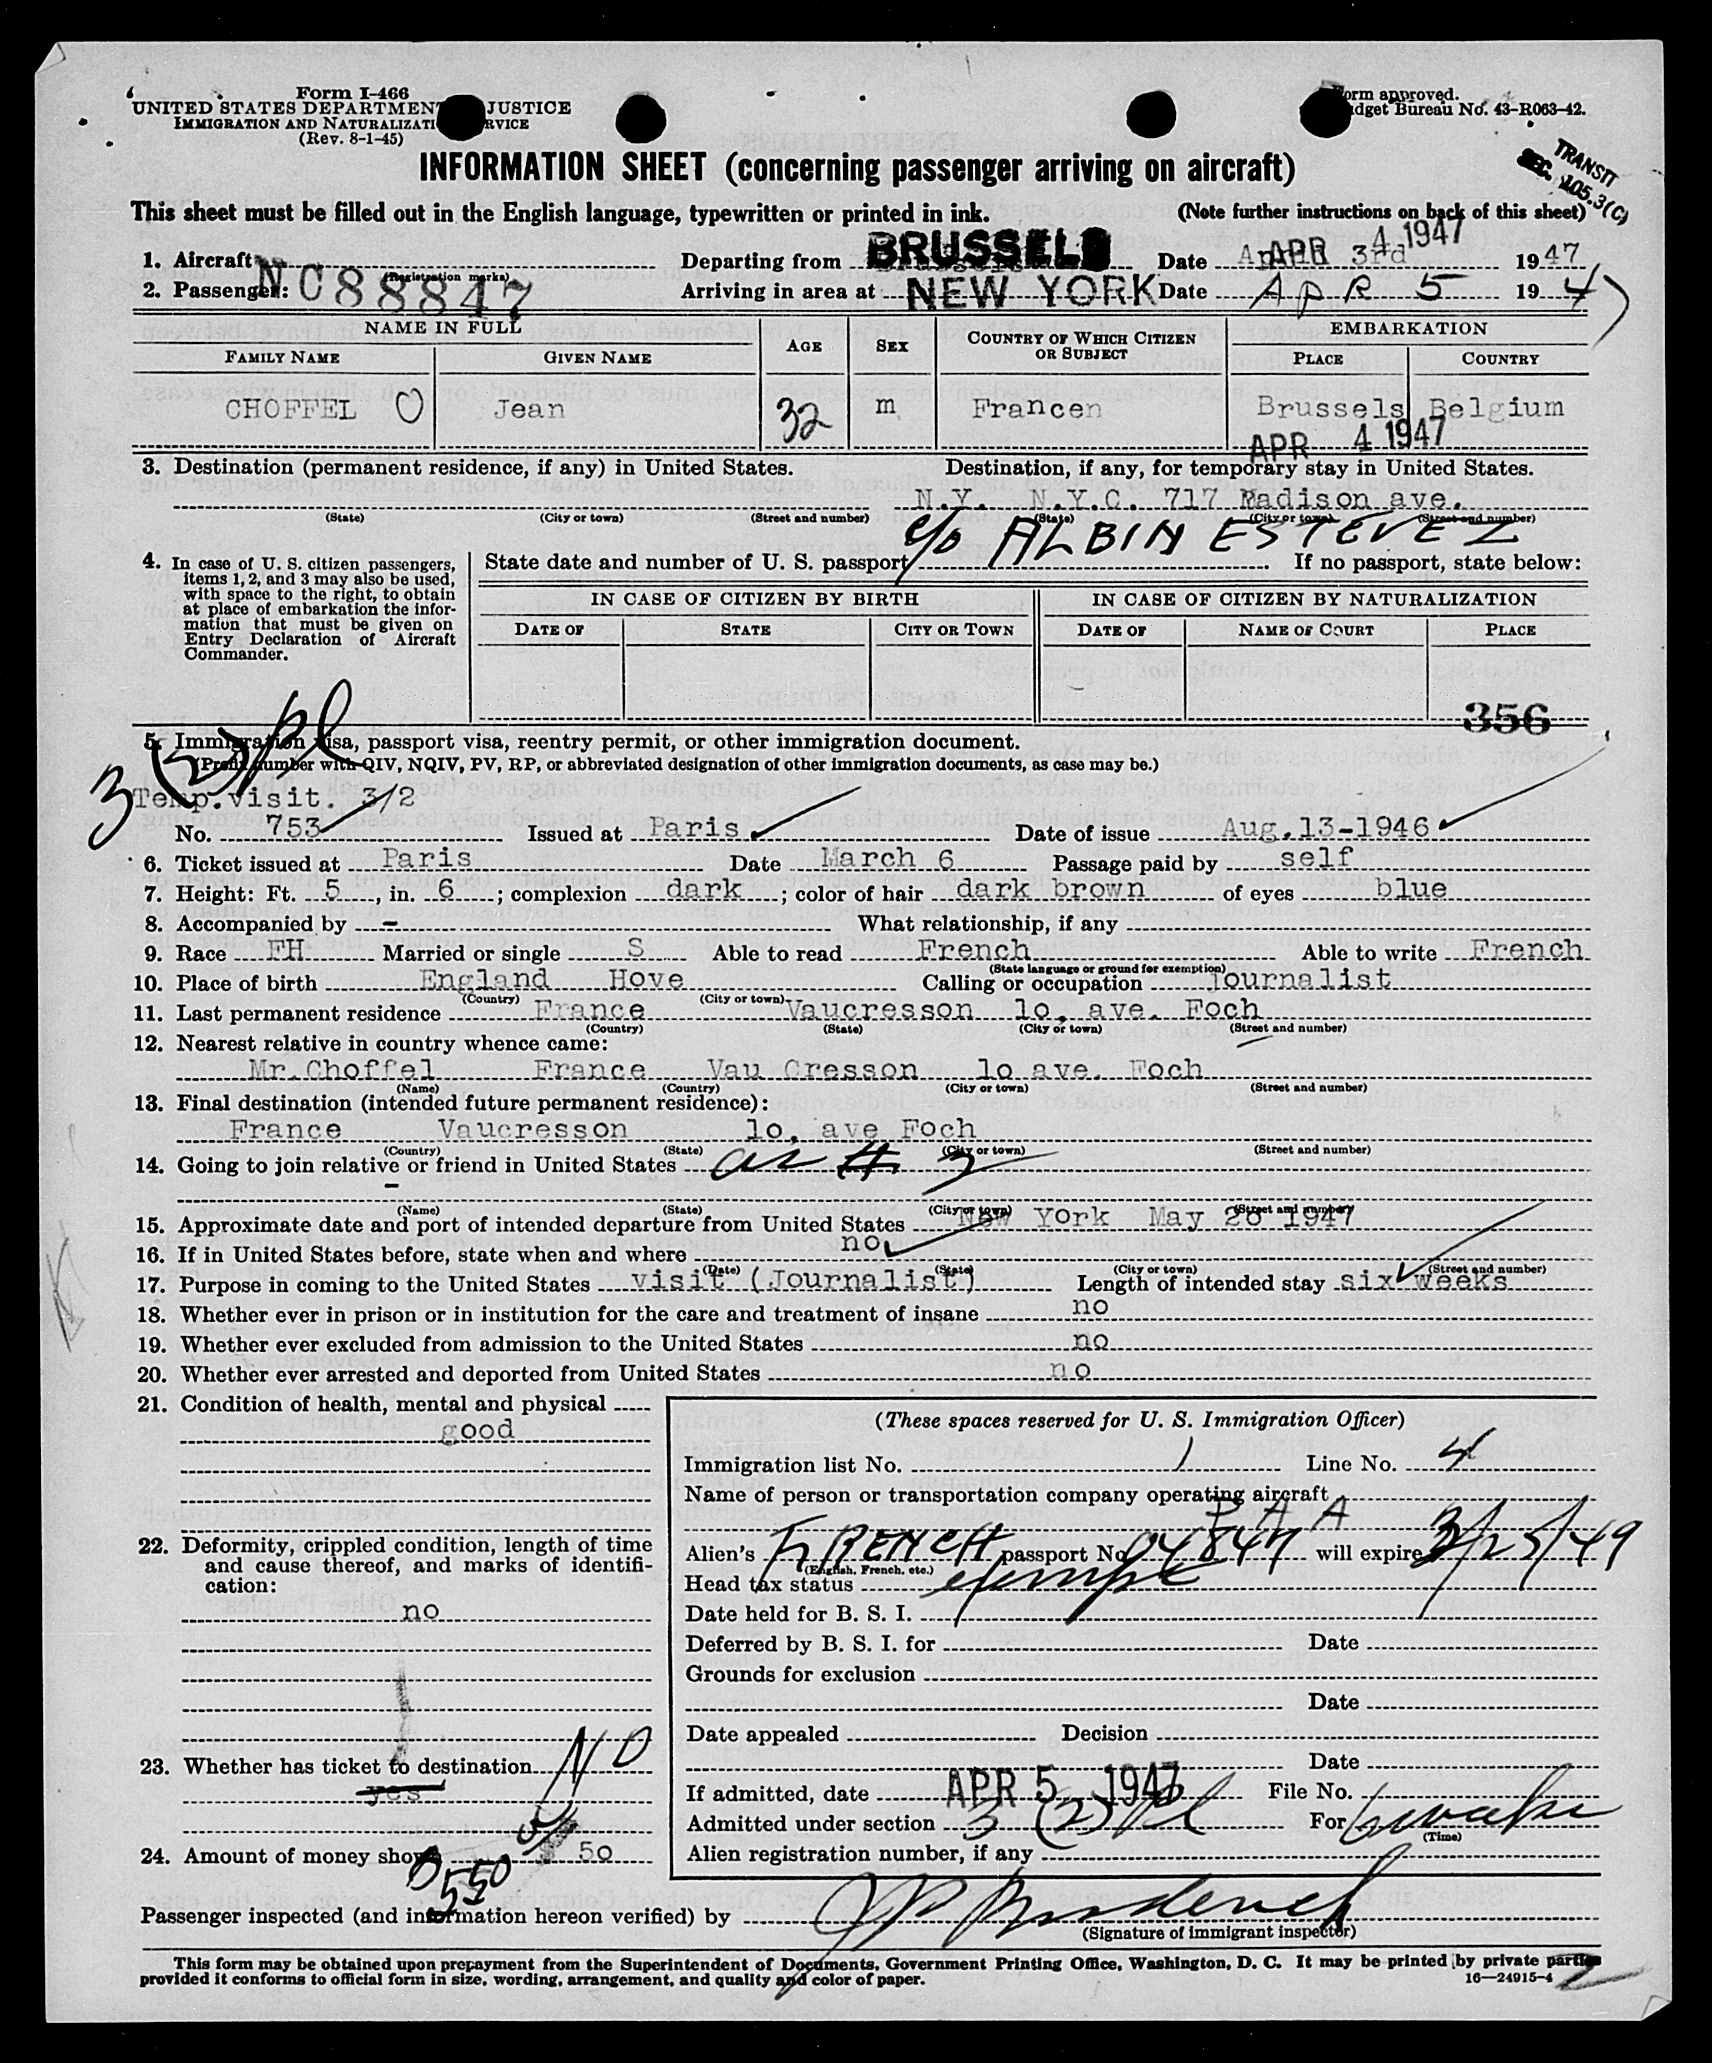 Form I-466
UNITED STATES DEPARTMENT JUSTICE
IMMIGRATION AND NATURALIZATI RVICE
(Rev. 8-1-45)
orm approved.
dget Bureau No. 43-R063-42.
TRANSIT
SEC. 105.3(C)
INFORMATION SHEET (concerning passenger arriving on aircraft)
This sheet must be filled out in the English language, typewritten or printed in ink. (Note further instructions on back of this sheet)
1. Aircraft NC88847 (Registration marks) Departing from BRUSSELS Date April 3rd APR 4 1947 1947
2. Passenger: Arriving in area at NEW YORK Date APR 5 1947
NAME IN FULL AGE SEX COUNTRY OF WHICH CITIZEN OR SUBJECT EMBARKATION
FAMILY NAME GIVEN NAME PLACE COUNTRY
CHOFFEL Jean 32 m Francen Brussels Belgium
APR 4 1947
3. Destination (permanent residence, if any) in United States. Destination, if any, for temporary stay in United States.
N.Y. N.Y.C. 717 Madison ave.
(State) (City or town) (Street and number) (State) (City or town) (Street and number)
c/o ALBIN ESTEVEZ
4. In case of U. S. citizen passengers, items 1, 2, and 3 may also be used, with space to the right, to obtain at place of embarkation the information that must be given on Entry Declaration of Aircraft Commander.
State date and number of U. S. passport If no passport, state below:
IN CASE OF CITIZEN BY BIRTH IN CASE OF CITIZEN BY NATURALIZATION
DATE OF STATE CITY OR TOWN DATE OF NAME OF COURT PLACE
356
5. Immigration visa, passport visa, reentry permit, or other immigration document.
(Prefix number with QIV, NQIV, PV, RP, or abbreviated designation of other immigration documents, as case may be.)
3 (2) pl
Temp.visit. 3/2
No. 753 Issued at Paris Date of issue Aug.13-1946
6. Ticket issued at Paris Date March 6 Passage paid by self
7. Height: Ft. 5, in. 6; complexion dark; color of hair dark brown of eyes blue
8. Accompanied by - What relationship, if any
9. Race FH Married or single S Able to read French Able to write French
(State language or ground for exemption)
10. Place of birth England Hove Calling or occupation Journalist
(Country) (City or town)
11. Last permanent residence France Vaucresson 1o, ave. Foch
(Country) (State) (City or town) (Street and number)
12. Nearest relative in country whence came:
Mr.Choffel France Vau Cresson 1o ave. Foch
(Name) (Country) (City or town) (Street and number)
13. Final destination (intended future permanent residence):
France Vaucresson 1o, ave Foch
(Country) (State) (City or town) (Street and number)
14. Going to join relative or friend in United States as # 3
-
(Name) (State) (City or town) (Street and number)
15. Approximate date and port of intended departure from United States New York May 20 1947
16. If in United States before, state when and where no
(Date) (State) (City or town) (Street and number)
17. Purpose in coming to the United States visit (Journalist) Length of intended stay six weeks
18. Whether ever in prison or in institution for the care and treatment of insane no
19. Whether ever excluded from admission to the United States no
20. Whether ever arrested and deported from United States no
21. Condition of health, mental and physical
good
22. Deformity, crippled condition, length of time and cause thereof, and marks of identification:
no
23. Whether has ticket to destination NO
yes
24. Amount of money shown 50
550
(These spaces reserved for U. S. Immigration Officer)
Immigration list No. 1 Line No. 4
Name of person or transportation company operating aircraft
P A A
Alien's FRENCH passport No. 04847 will expire 3/25/49
(English, French, etc.)
Head tax status exempt
Date held for B. S. I.
Deferred by B. S. I. for Date
Grounds for exclusion
Date
Date appealed Decision
Date
If admitted, date APR 5 1947 File No.
Admitted under section 3 (2) pl For 6 weeks
(Time)
Alien registration number, if any
Passenger inspected (and information hereon verified) by
(Signature of immigrant inspector)
This form may be obtained upon prepayment from the Superintendent of Documents, Government Printing Office, Washington, D. C. It may be printed by private parties
provided it conforms to official form in size, wording, arrangement, and quality and color of paper.
16—24915-4